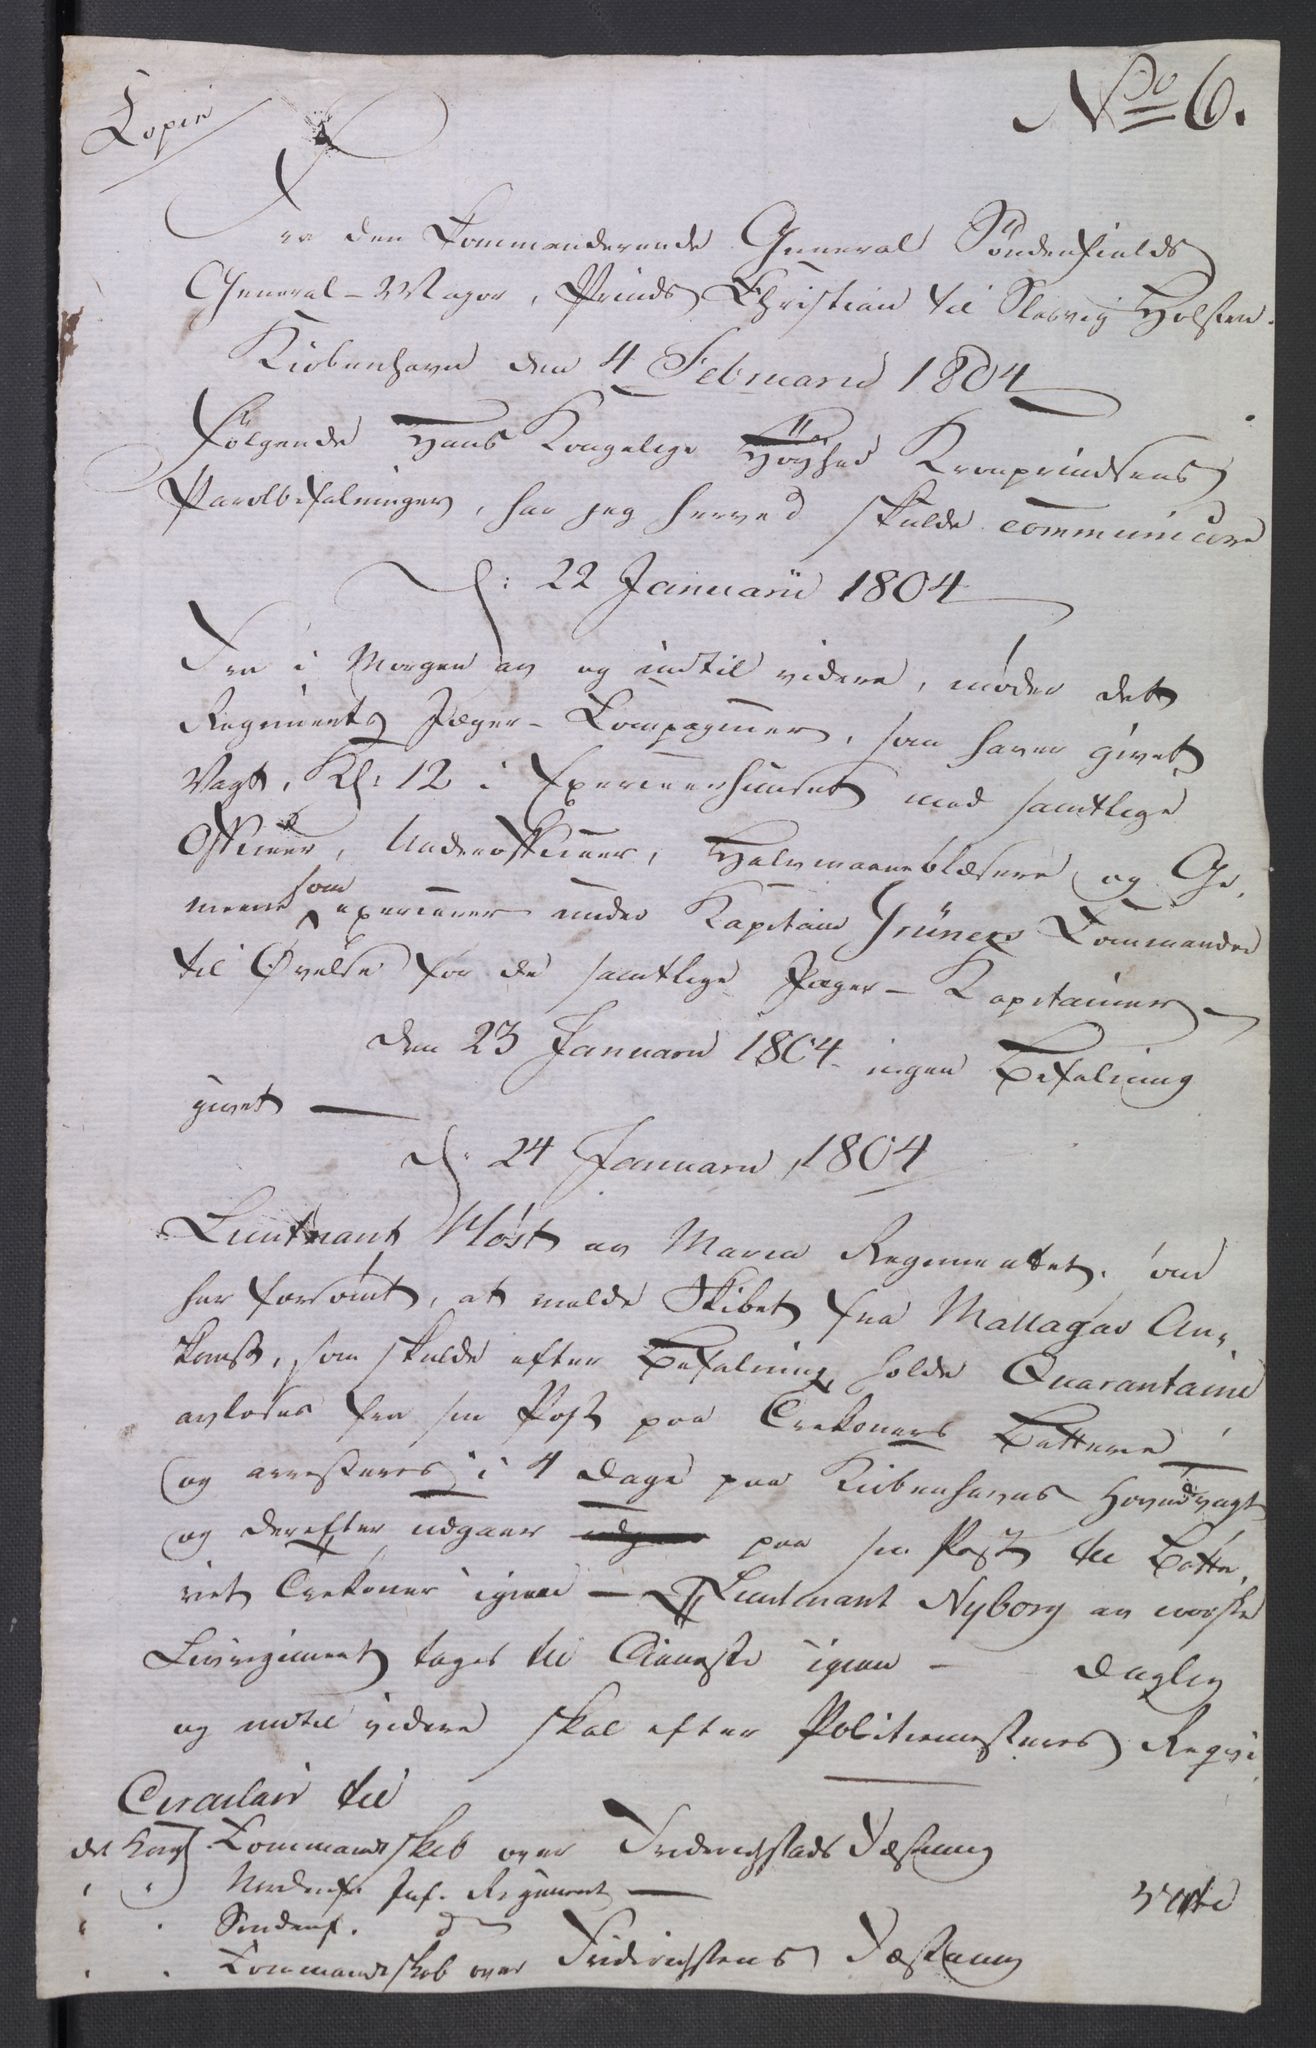 Copie
No 6.
Fra den Commanderende General Søndenfields
General-Major, Prinds Christian til Slesvig Holsten.
Kiøbenhavn den 4 Februarii 1804
Følgende Hans Kongelige Høyhed Kronprindsens
Parolbefalninger, har jeg herved skulde communicere
d: 22 Januarii 1804
Fra i Morgen av og indtil videre, møder det
Regiments Jæger-Compagnier, som haver givet
Vagt, Kl: 12 i Exerceerhuuset med samtlige
Officerer, Underofficerer, Halvmaaneblæsere og Ge-
meene som exercerer under Kapitain Grüners Commando
til Øvelse for de samtlige Jæger-Kapitainer
den 23 Januarii 1804 ingen Befalning
givet —
d: 24 Januarii 1804
Lieutnant Møst av Marine Regimentet, som
har forsømt, at melde Skibet fra Mallagas An-
komst, som skulde efter Befalning holde Quarantaine
avløses fra sin Post paa Trekoners Batterie
og arresteres i 4 Dage paa Kiøbenhavns Hovedvagt
og derefter udgaaer udgaaer paa sin Post til Batte-
riet Trekoner igien — Lieutnant Nyborg av norske
Livregiment tages til Tieneste igien — Daglig
og indtil videre skal efter Politiemesterens Reqvi-
Circulair til
det Kongl Commandtskab over Frederichstads Fæstning
" " Nordenf. Inf. Regiment —
" " Søndenf. do
" " Commandtskab over Friderichstens Fæstning